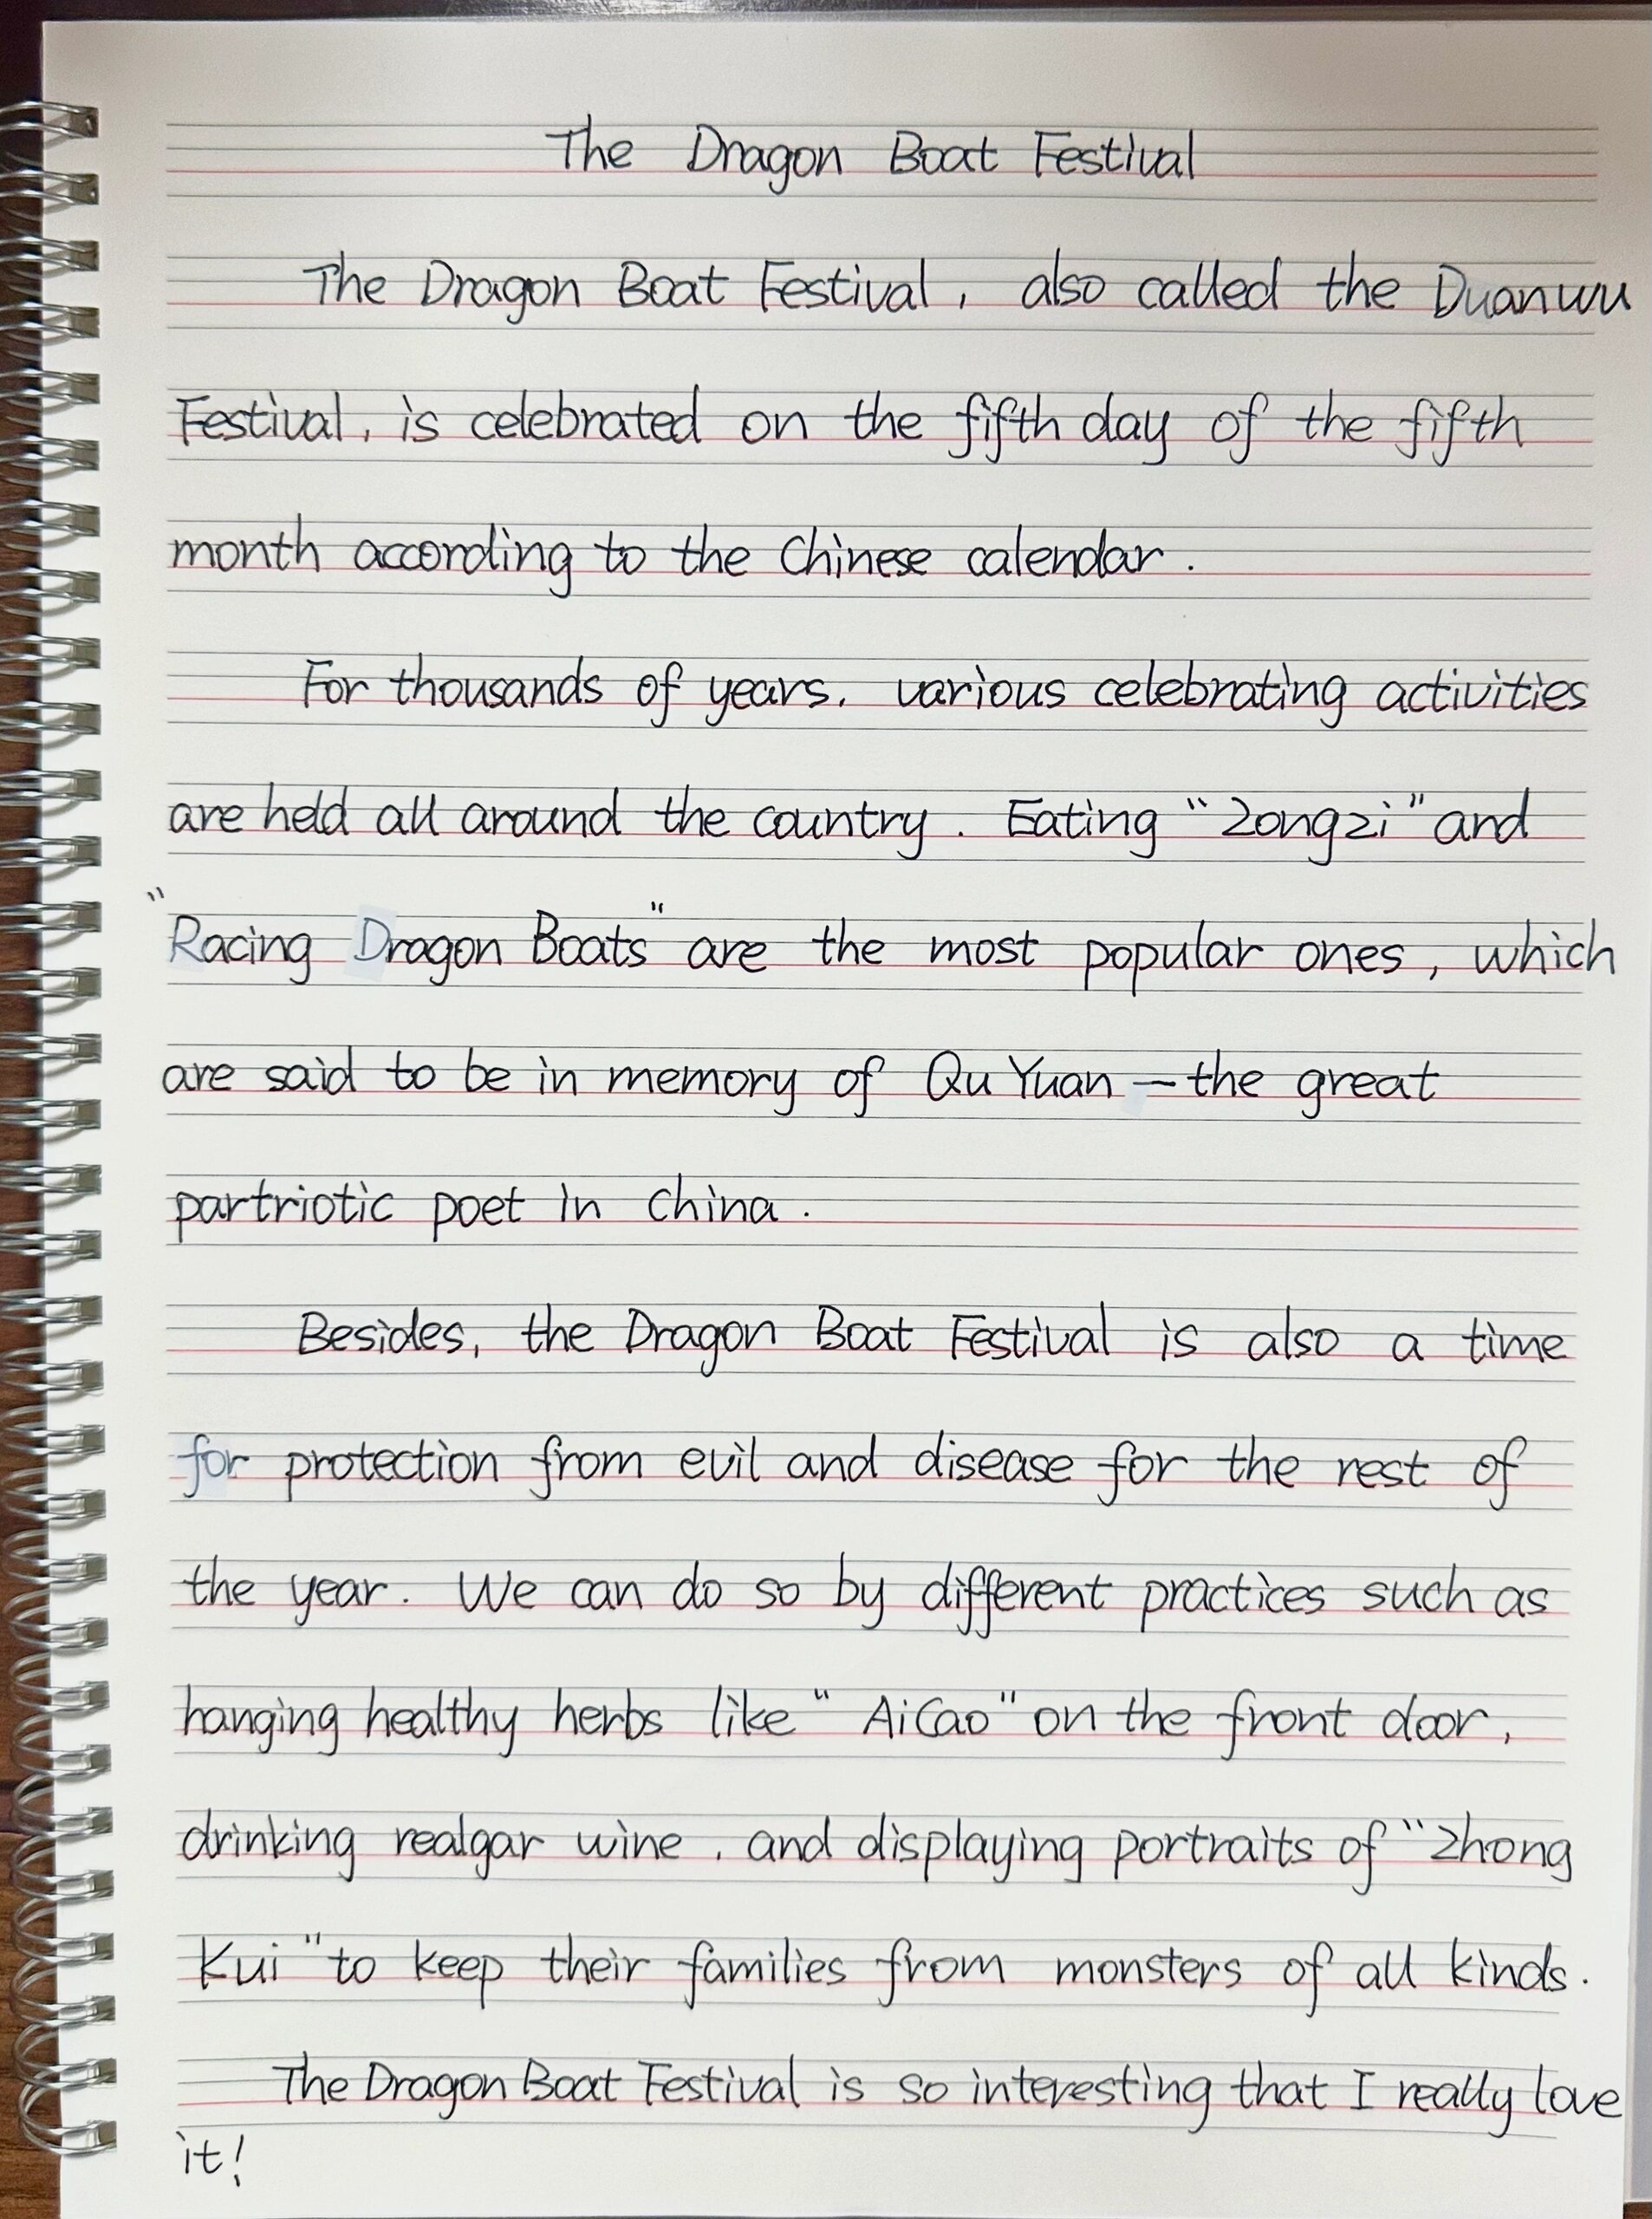 The Dragon Boat Festival
The Dragon Boat Festival, also called the Duanwu
Festival, is celebrated on the fifth day of the fifth
month according to the Chinese calendar.
For thousands of years, various celebrating activities
are held all around the country. Eating "Zongzi" and
"Racing Dragon Boats" are the most popular ones, which
are said to be in memory of Qu Yuan — the great
partriotic poet in China.
Besides, the Dragon Boat Festival is also a time
for protection from evil and disease for the rest of
the year. We can do so by different practices such as
hanging healthy herbs like "AiCao" on the front door,
drinking realgar wine, and displaying portraits of "Zhong
Kui" to keep their families from monsters of all kinds.
The Dragon Boat Festival is so interesting that I really love
it!